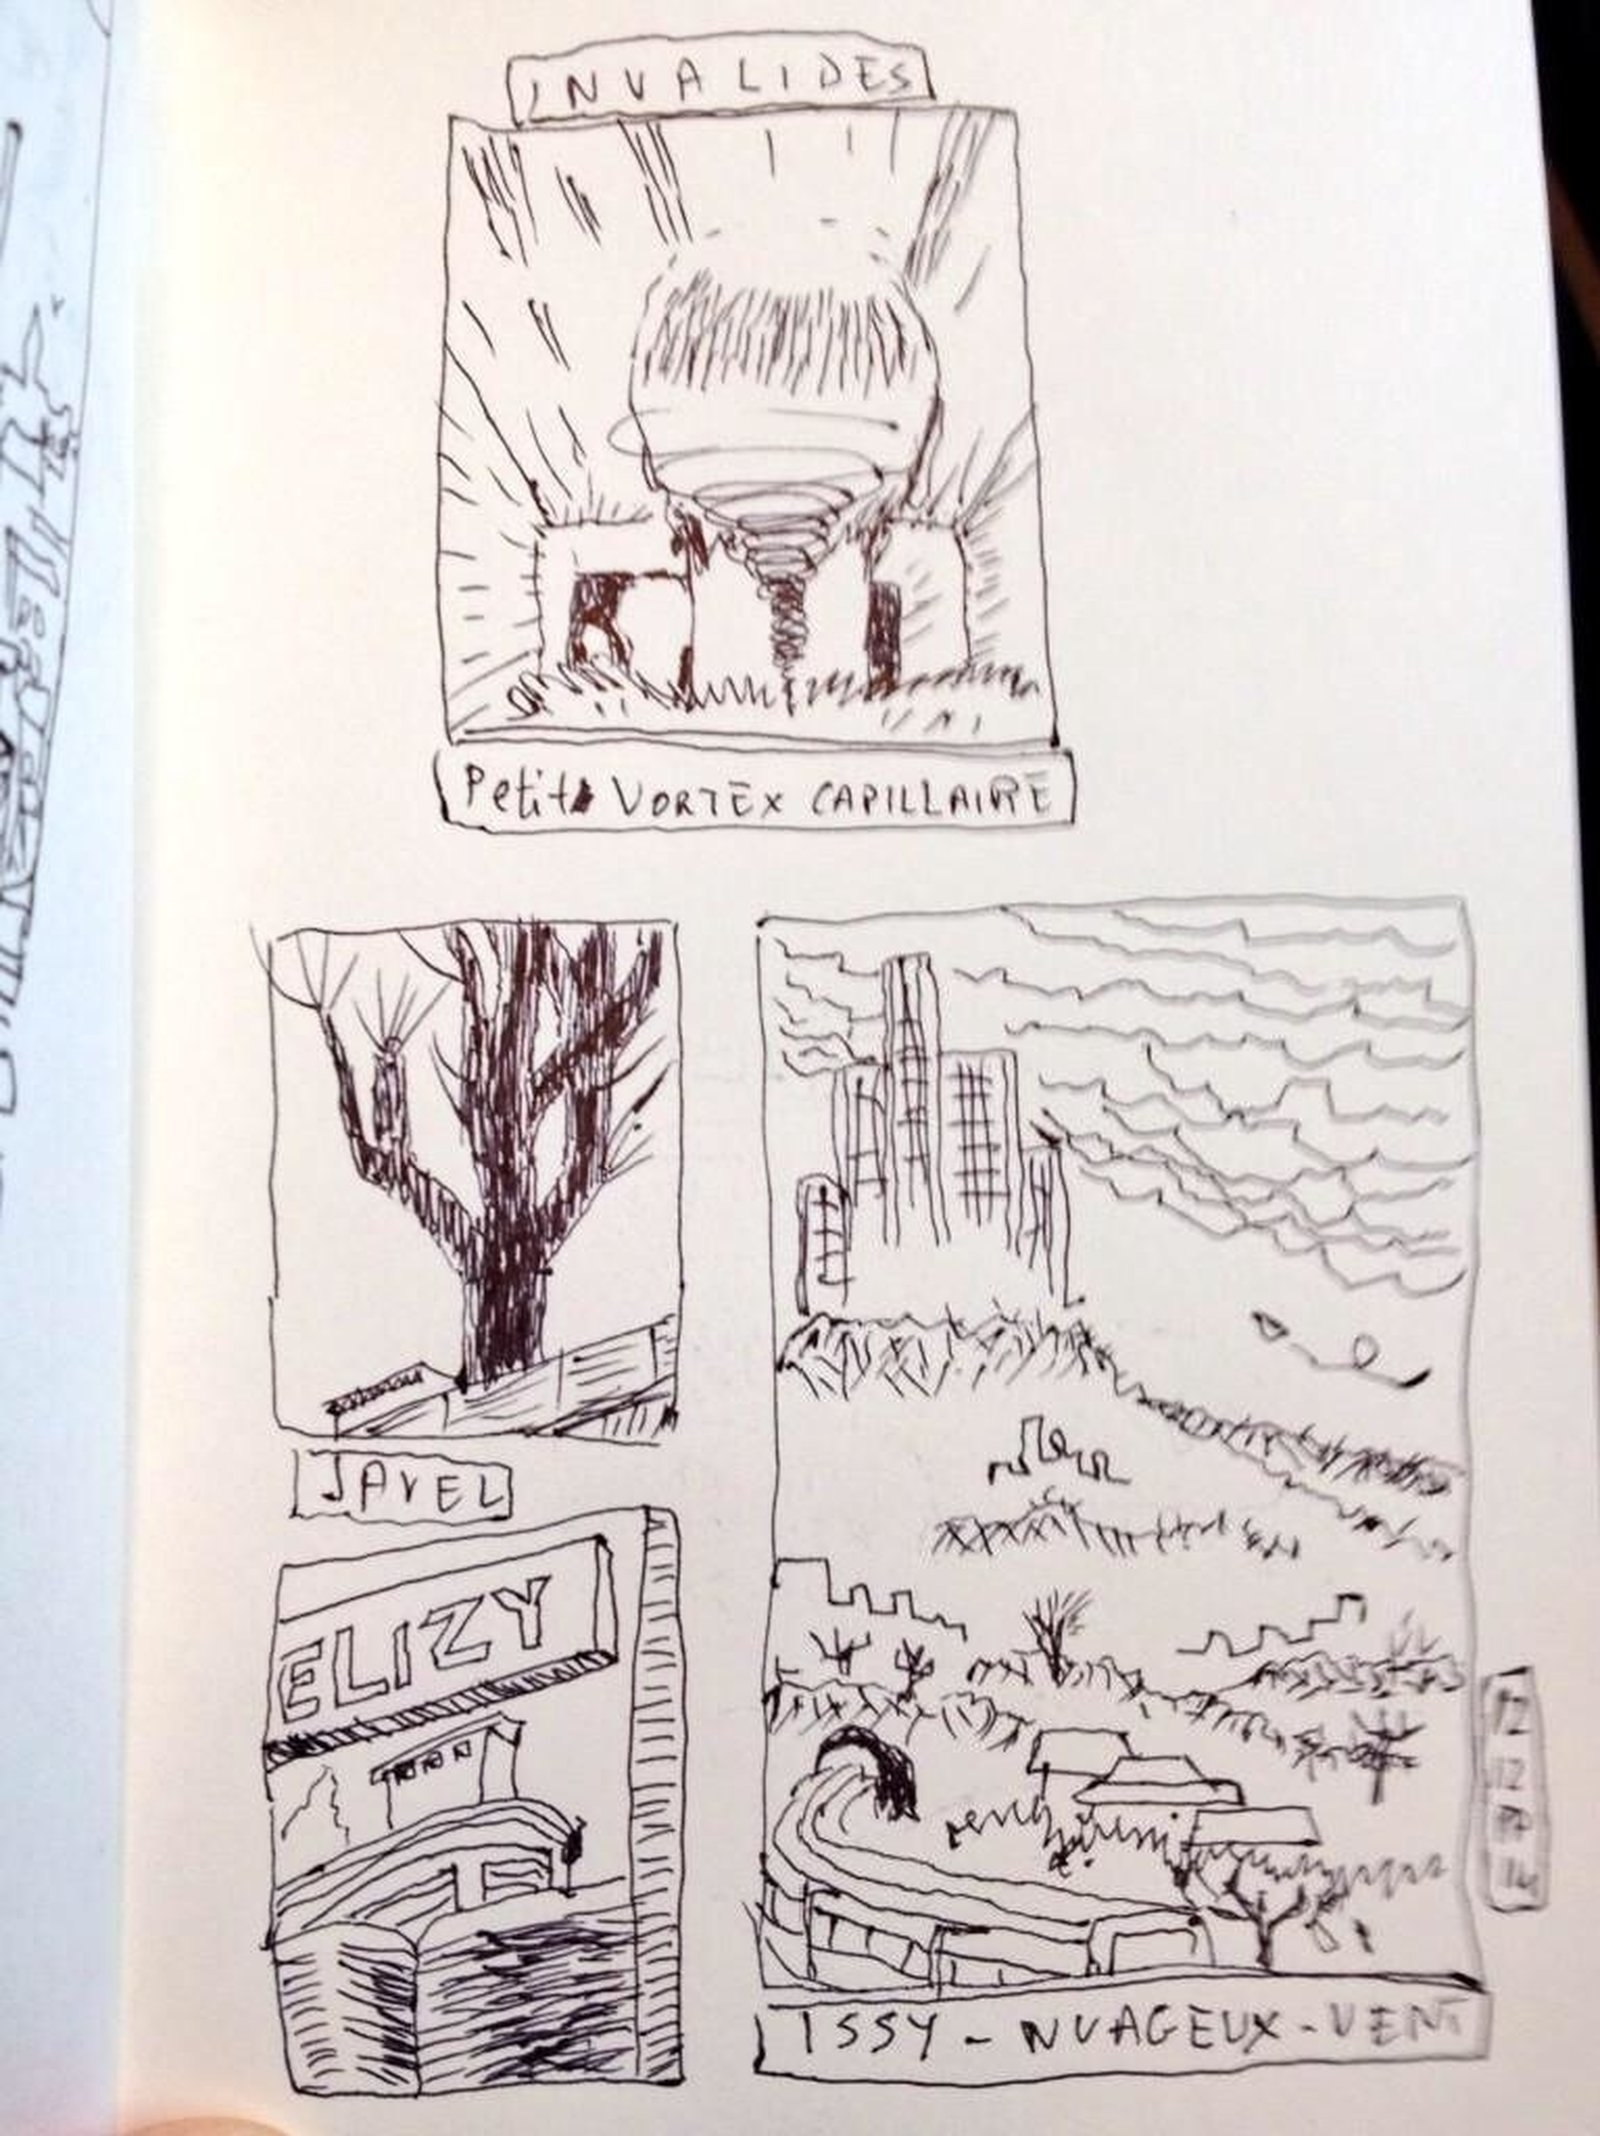 INVALIDES
Petit VORTEX CAPILLAIRE
JAVEL
ELIZY
ISSY - NUAGEUX - VENT
12
12
14